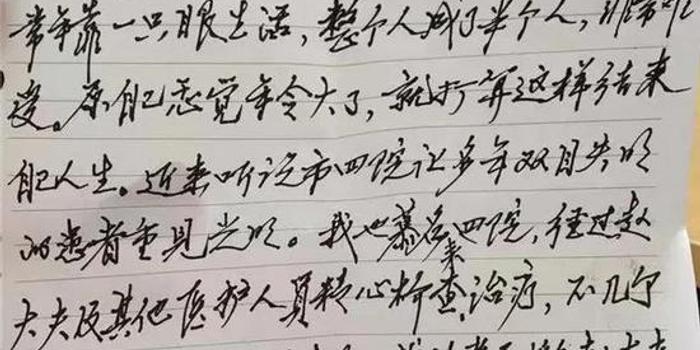 常年靠一只眼生活，整个人成了半个人，非常难
受。原自己感觉年令大了，就打算这样结束
自己人生。近来听说市四院让多年双目失明
的患者重见光明。我也慕名来四院，经过赵
大夫及其他医护人员精心检查治疗，不几个